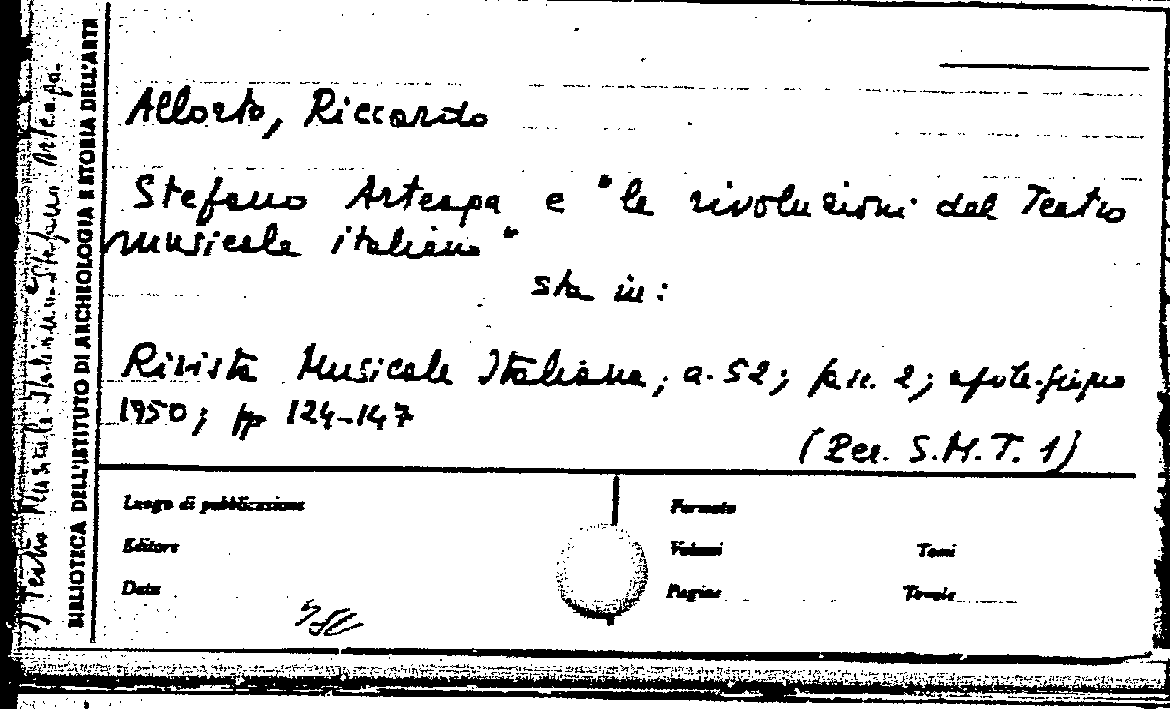 Allorto, Riccardo
Stefano Arteaga e "le rivoluzioni del Teatro
musicale italiano"
sta in:
Rivista Musicale Italiana, a. 52; fasc. 2; aprile-giugno
1950; pp 124-147
(Per. S.M.T. 1)
Luogo di pubblicazione
Formato
Editore
Volumi
Tomi
Data
Pagine
Tavole
BIBLIOTECA DELL'ISTITUTO DI ARCHEOLOGIA E STORIA DELL'ARTE
1) Teatro Musicale Italiano Stefano Arteaga.